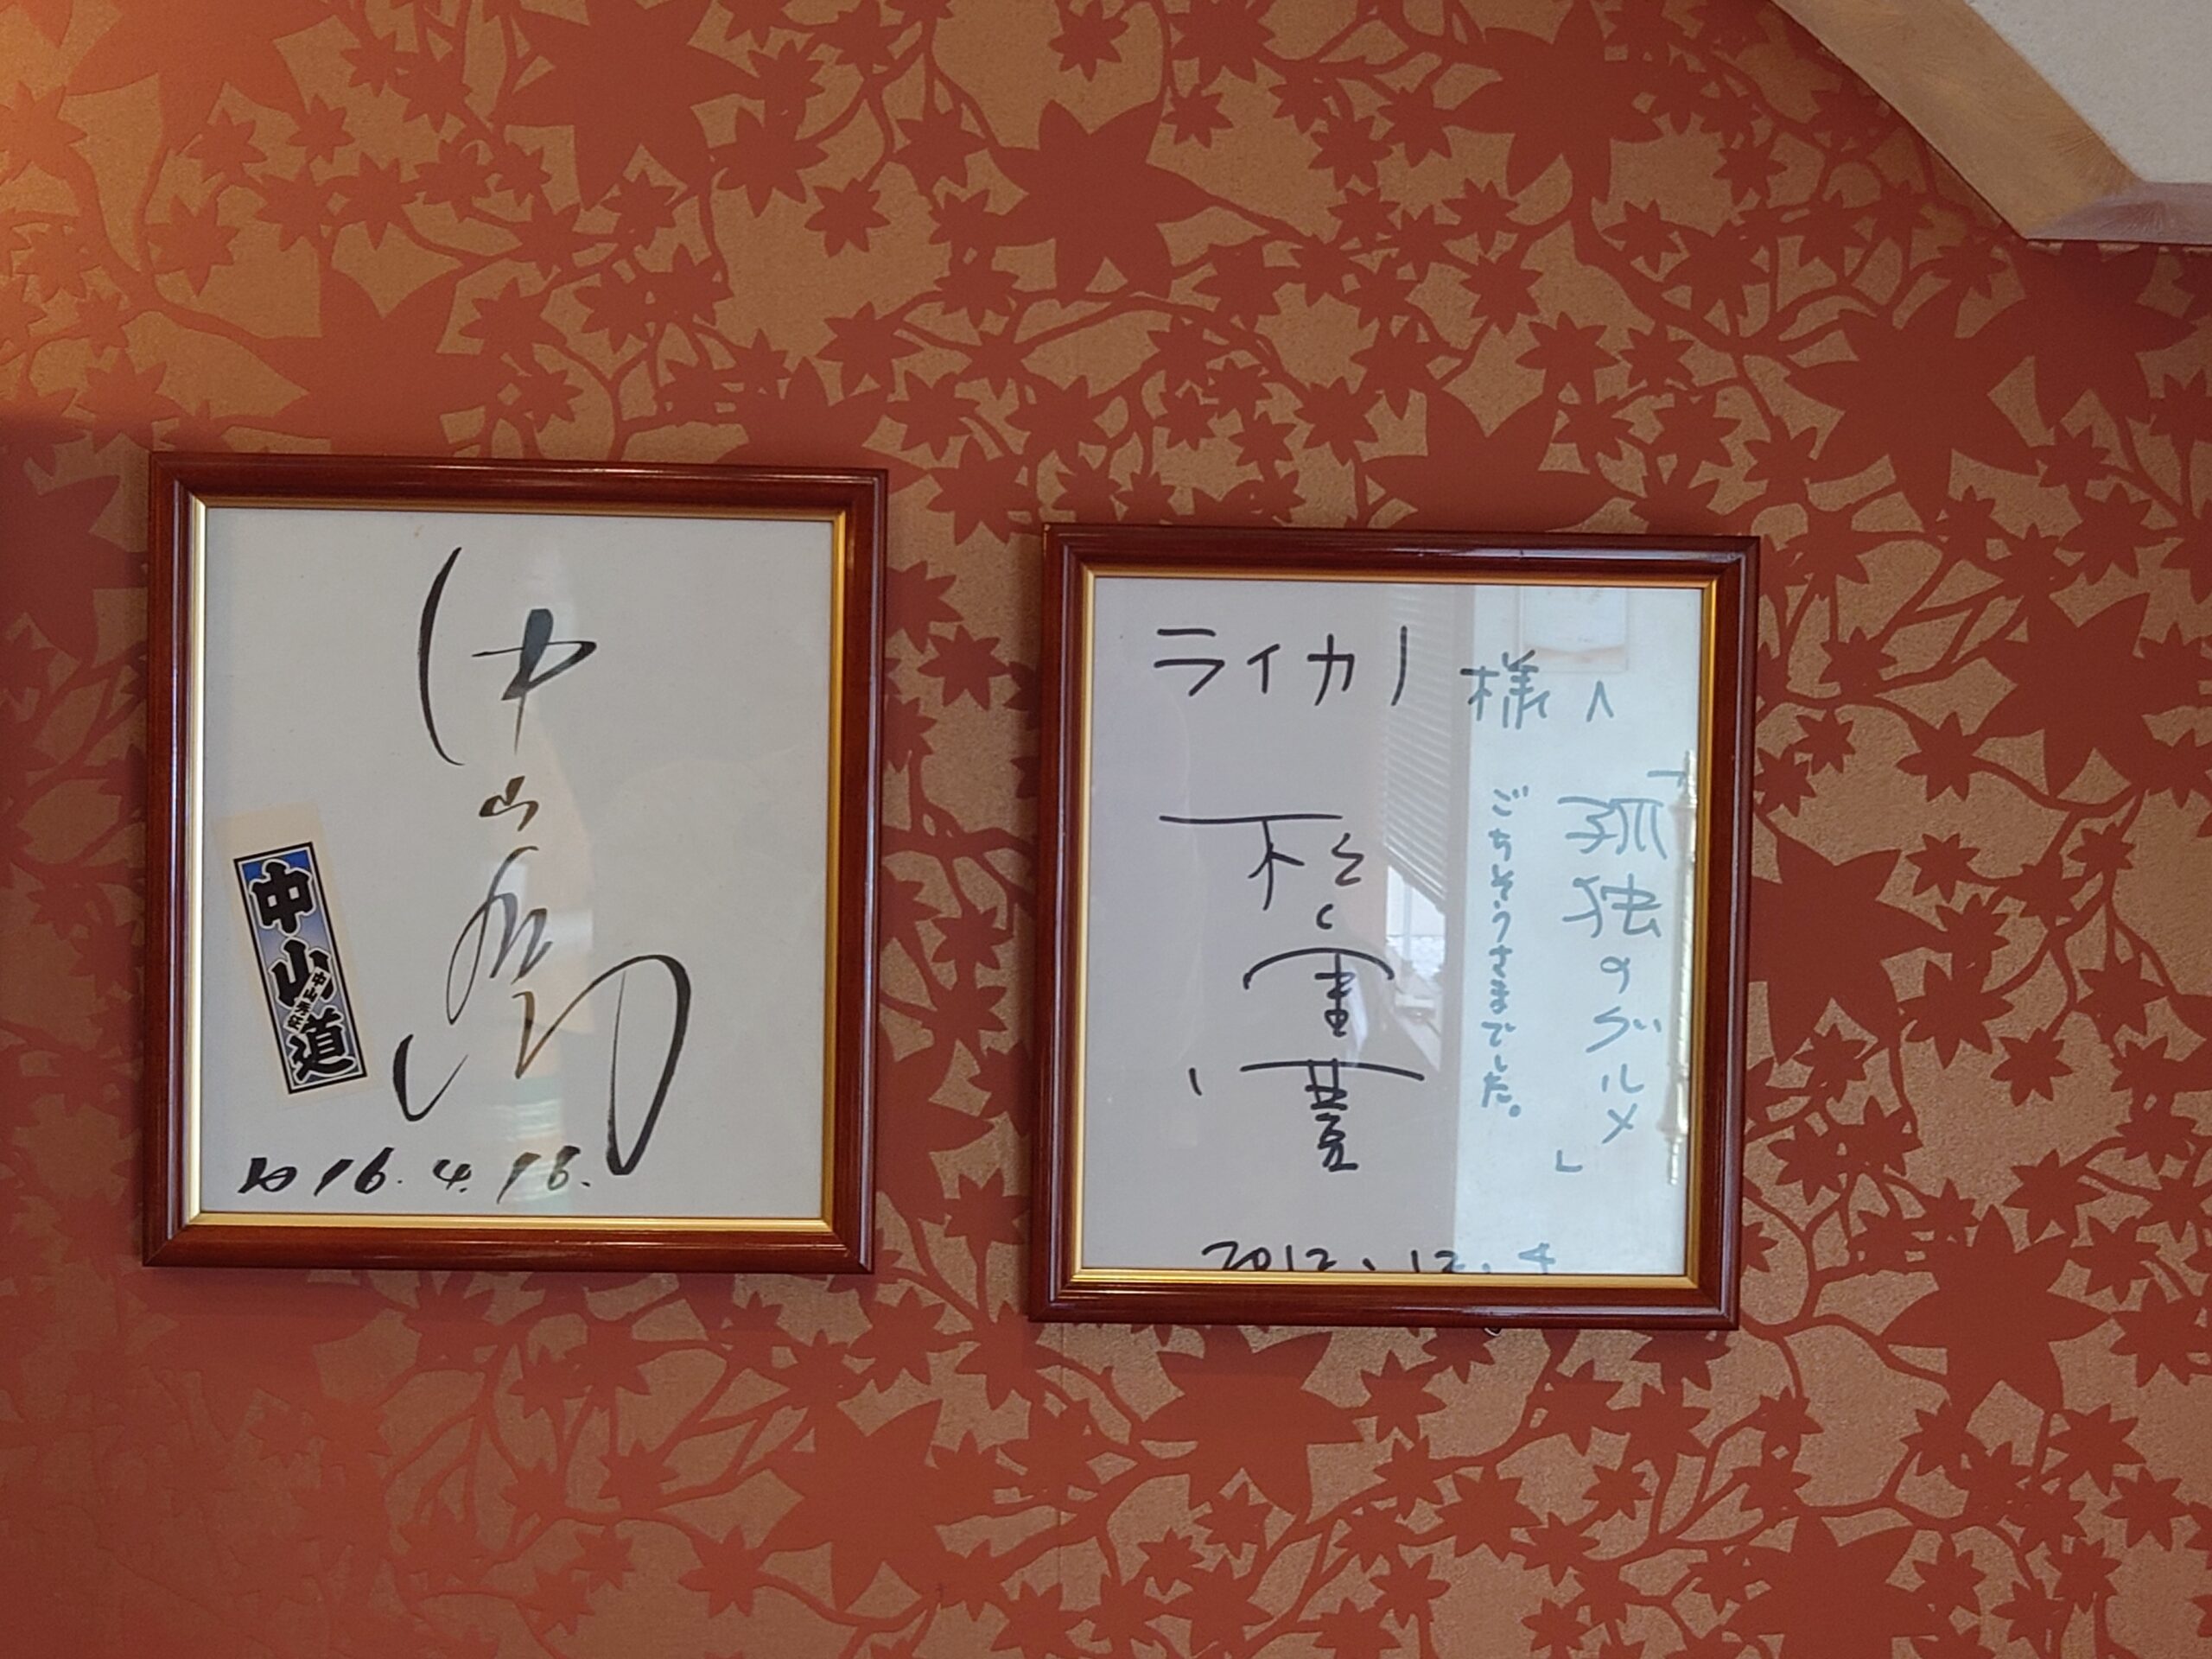 中山秀征
中山道
中山秀征
2016.4.16.
ライカノ様へ
「孤独のグルメ」
ごちそうさまでした。
松重豊
2012.12.4